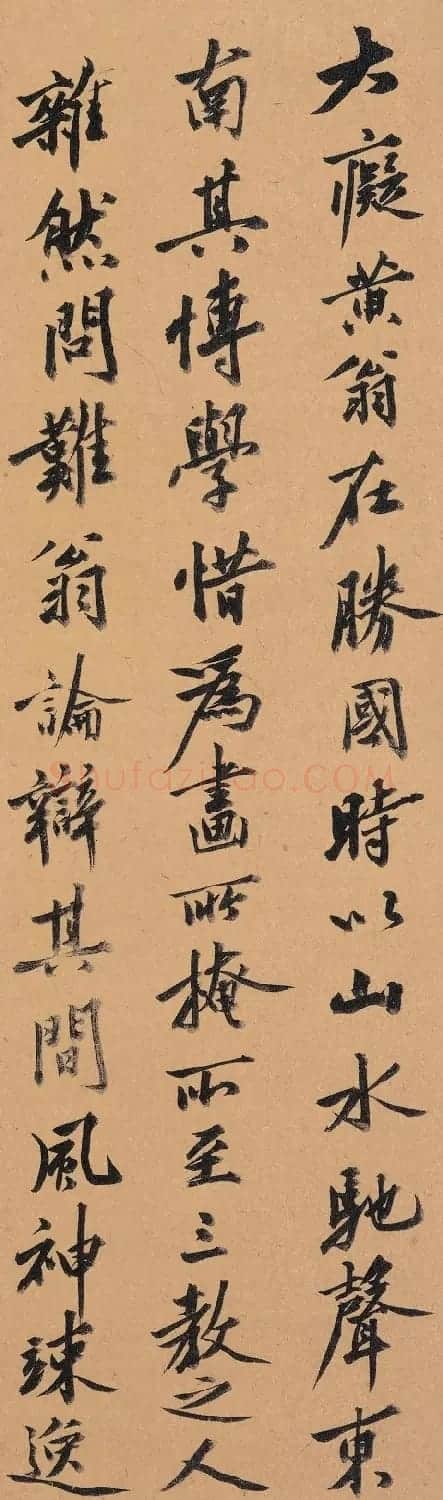 大癡黄翁在勝國時以山水馳聲東
南其博學惜爲畫所掩所至三教之人
雜然問難翁論辯其間風神竦逸
shufaziliao.COM